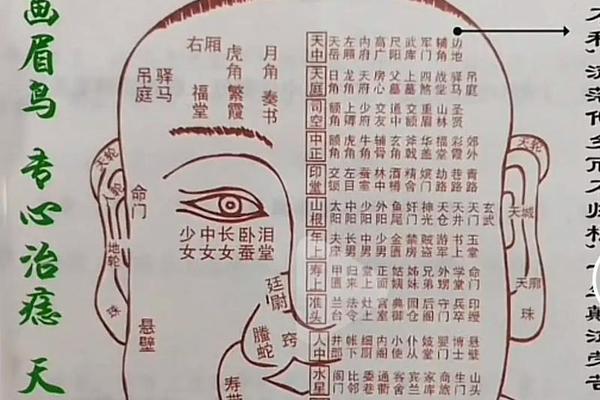 画眉鸟 专心治痣 天
右厢
虎角
月角
驿马
吊庭
福堂
繁霞
奏书
天中 天岳 左厢 内府 高广 尺阳 武库 军门 辅角 边地
天庭 日角 龙角 天府 房心 父墓 上墓 四煞 战堂 驿马 吊庭
司空 额角 上卿 少府 交友 道中 交额 重眉 山林 圣贤
中正 额角 虎角 牛角 辅骨 玄角 斧戟 华盖 福堂 彩霞 郊外
印堂 交锁 左目 蚕室 林中 酒樽 精舍 嫔门 劫路 巷路 青路
山根 太阳 中阳 少阳 外阳 鱼尾 奸门 神光 天仓 天井 天门 玄武
年上 夫座 长男 中男 少男 金匮 禁房 贼盗 游军 书上 玉堂
寿上 甲匮 归来 堂上 正面 姑姨 姊妹 兄弟 外甥 学堂 命门
准头 兰台 法令 灶上 宫室 典御 园仓 后阁 守门 兵卒 印绶
人中 井部 帐下 细厨 内阁 小使 仆从 妓堂 婴门 博士 悬壁
水星 阁门 比邻 委巷 通衢 客舍 宾兰 家库 商旅 生门 山头
天轮
人轮
地轮
珠
命门
少女
中女
长女
卧蚕
泪堂
悬壁
廷尉
螣蛇
窍
寿带
天轮
天城
天廓
珠